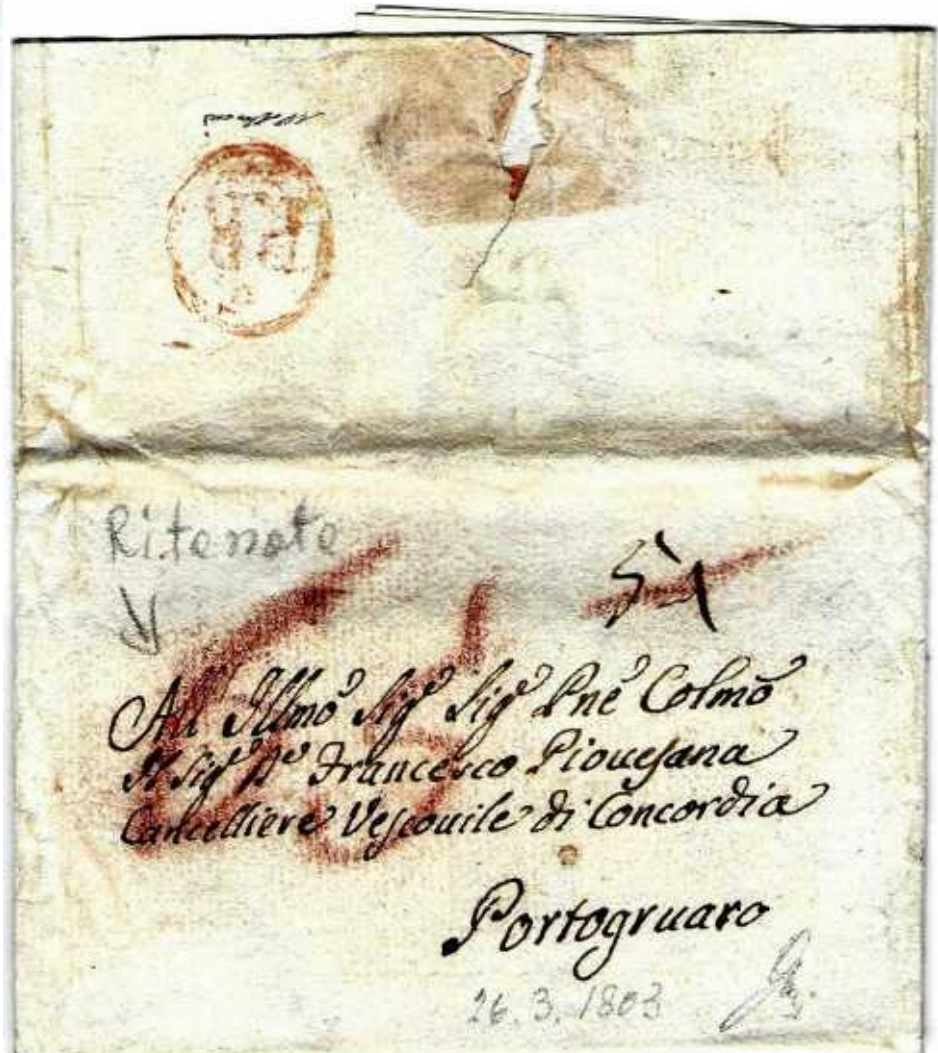 Ritenote
All Illmõ Sig.r Sig.r Pnẽ Colmõ
Il Sig.r D.n Francesco Piouesana
Cancelliere Vescouile di Concordia
Portogruaro
26.3.1803